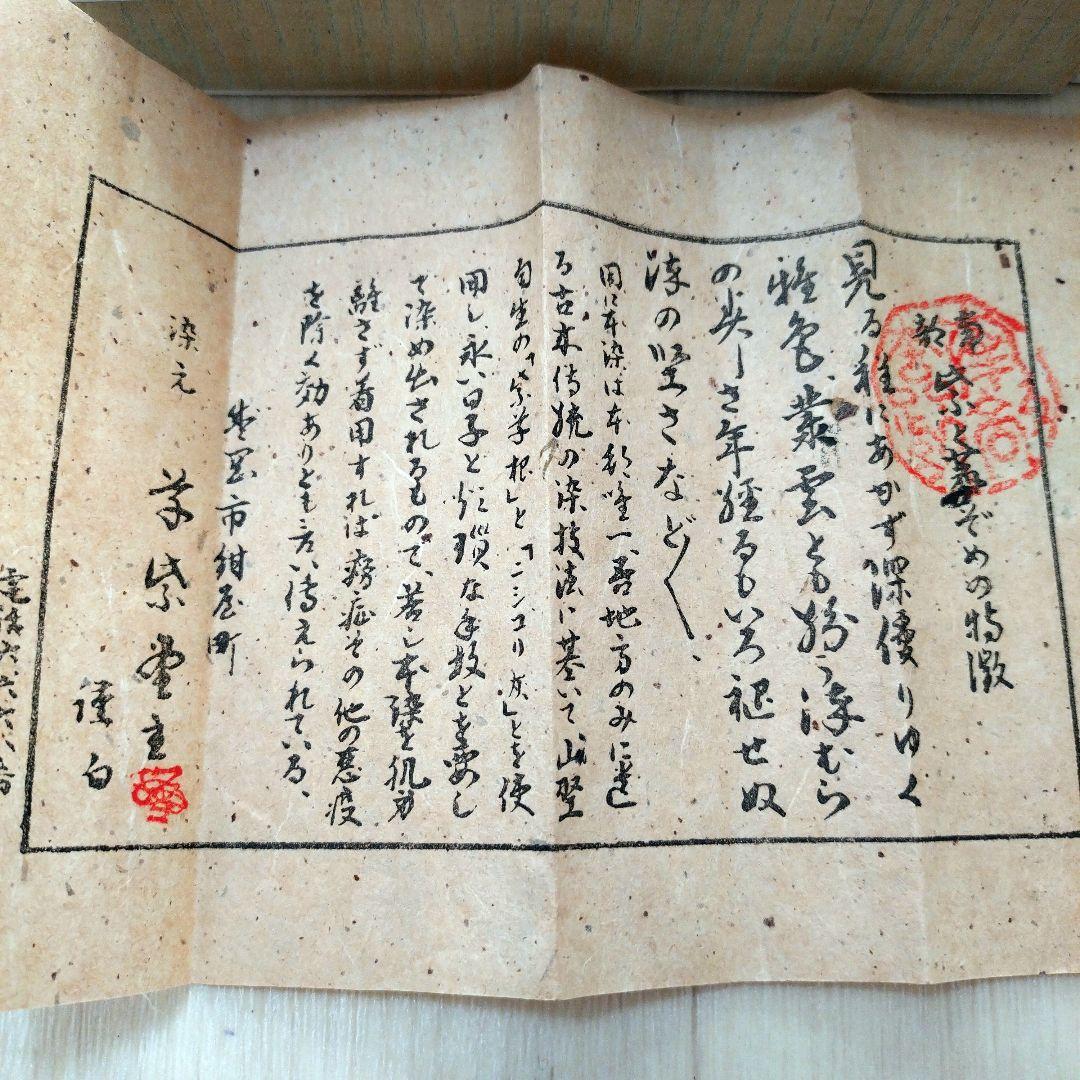 南部紫そめの特徴
見る程にあかず深優りゆく
雅色、叢雲とも紛う沫むら
の美しさ年経るもいろ褪せぬ
沫の堅さなど〱、
因に本染は本邦唯一、吾地方のみに遺
る古来伝統の染技法に基いて、山野
自生の「紫草根」と「ニシコリ灰」とを使
用し、永い日子と煩瑣な手数とを要し
て染め出されるもので、若し本染を肌身
離さず着用すれば 病症その他の悪疫
を除く効ありとも言い伝えられている、
盛岡市紺屋町
染元 草紫堂主
謹白